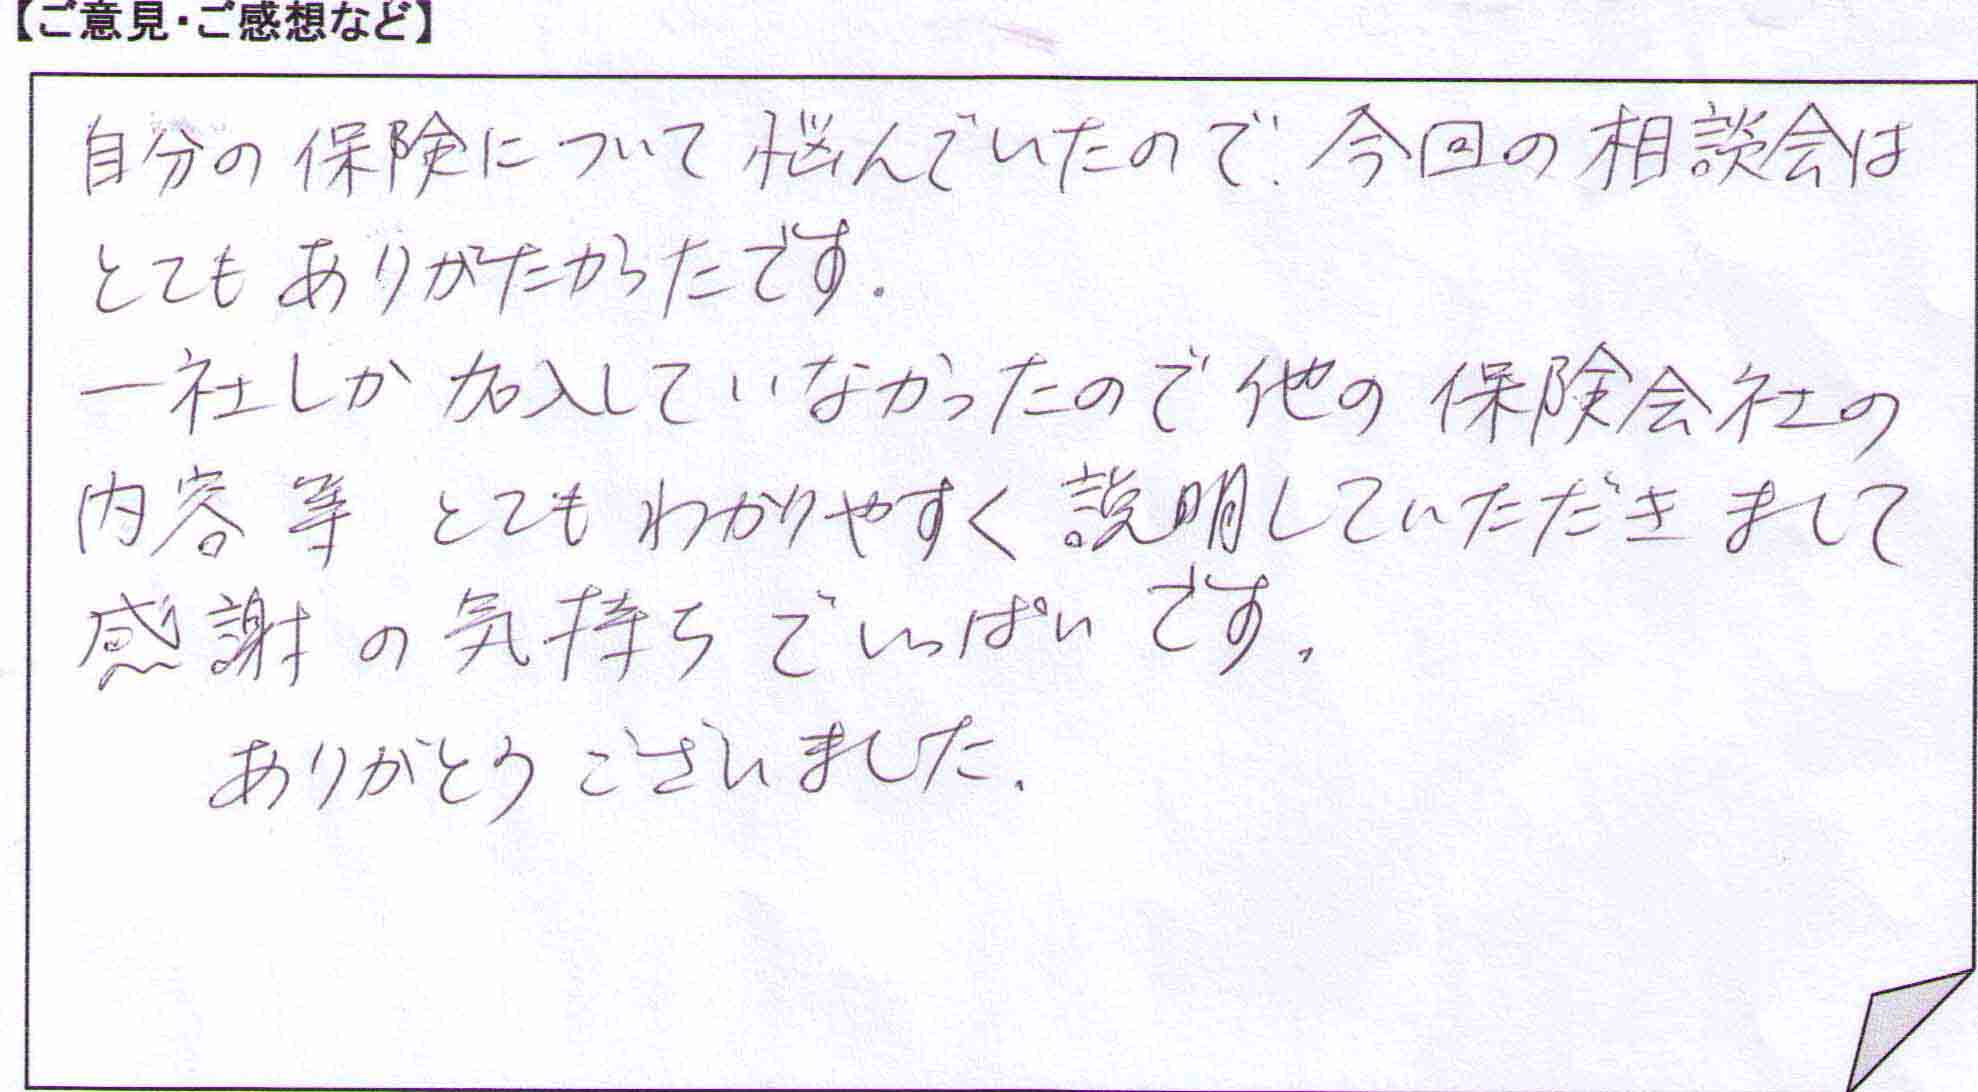 【ご意見・ご感想など】
自分の保険について悩んでいたので、今回の相談会は
とてもありがたかったです。
一社しか加入していなかったので他の保険会社の
内容等 とてもわかりやすく説明していただきまして
感謝の気持ちでいっぱいです。
ありがとうございました。